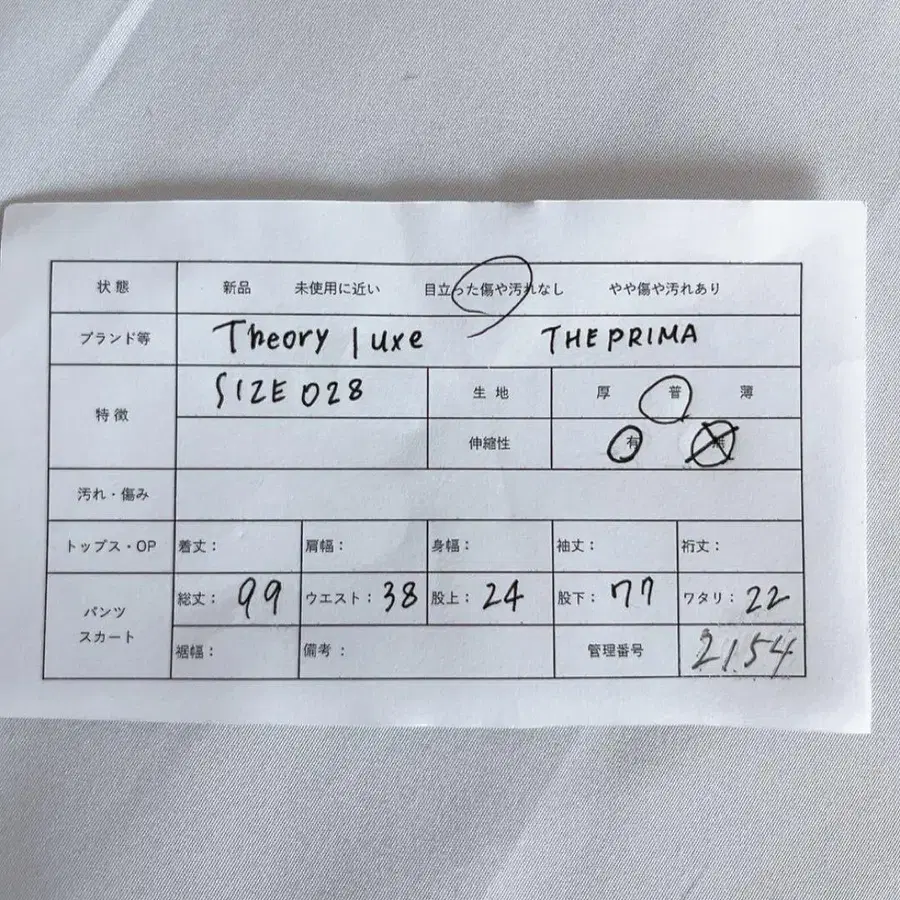 状態 新品 未使用に近い 目立った傷や汚れなし やや傷や汚れあり
ブランド等 Theory luxe THEPRIMA
特徴 SIZE 028 生地 厚 普 薄
伸縮性 有 無
汚れ・傷み
トップス・OP 着丈： 肩幅： 身幅： 袖丈： 裄丈：
パンツ スカート 総丈： 99 ウエスト： 38 股上： 24 股下： 77 ワタリ： 22
裾幅： 備考： 管理番号 2154